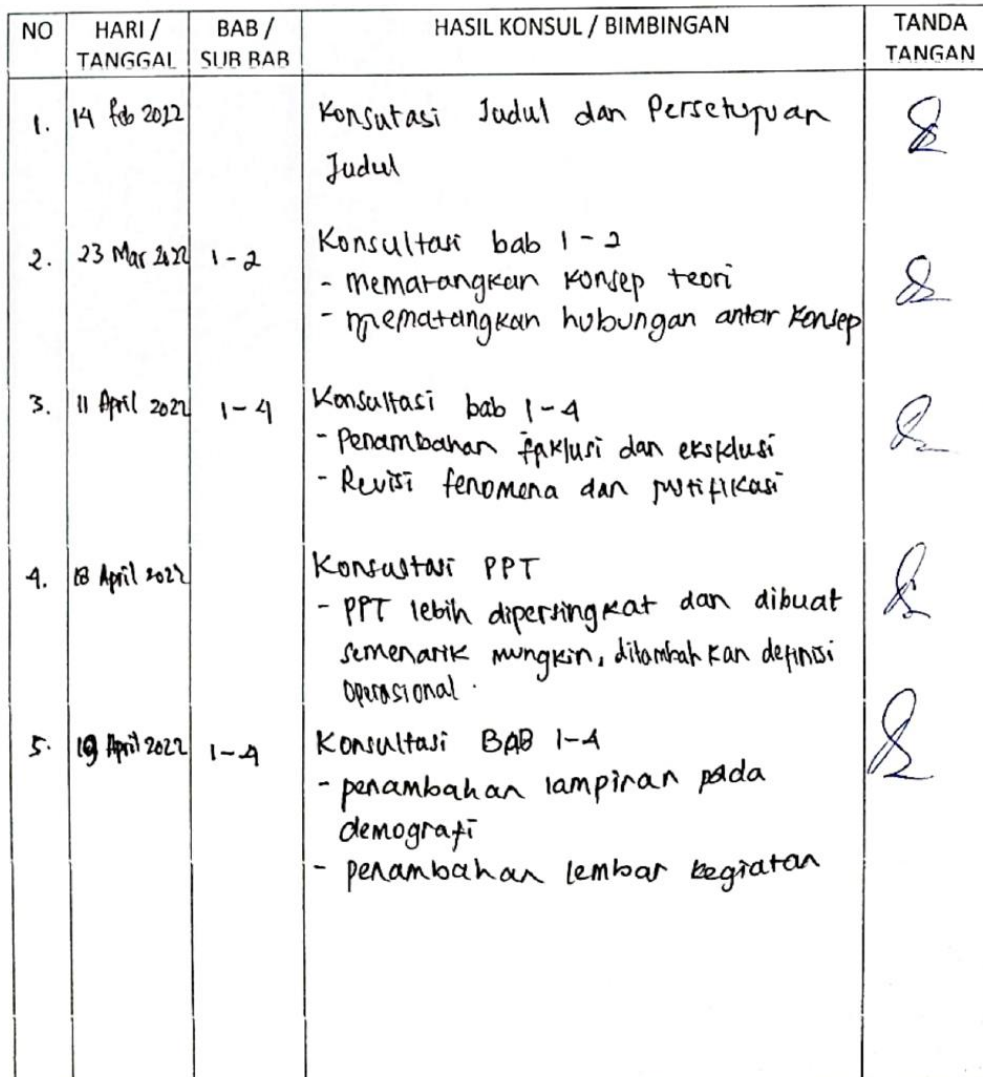 NO HARI / BAB / HASIL KONSUL / BIMBINGAN TANDA
TANGGAL SUB BAB TANGAN
1. 14 feb 2022 Konsutasi Judul dan Persetujuan
Judul
2. 23 Mar 2022 1 - 2 Konsultasi bab 1 - 2
- mematangkan konsep teori
- mematangkan hubungan antar konsep
3. 11 April 2022 1 - 4 Konsultasi bab 1 - 4
- Penambahan dan eksklusi
- Revisi fenomena dan justifikasi
4. 18 April 2022 Konsultasi PPT
- PPT lebih dipersingkat dan dibuat
semenarik mungkin, ditambahkan definisi
operasional.
5. 19 April 2022 1 - 4 Konsultasi BAB 1-4
- penambahan lampiran pada
demografi
- penambahan lembar kegiatan